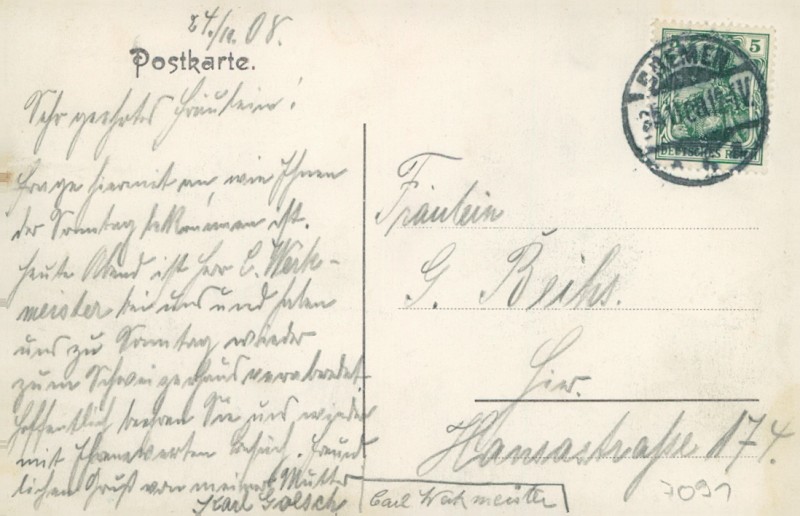 24./11. 08.
Postkarte.
Sehr geehrtes Fräulein!
Frage hiermit an, wie Ihnen
der Sonntag bekommen ist.
Heute Abend ist Herr C. Werk-
meister bei uns und haben
uns zu Sonntag wieder
zum Schweizerhaus verabredet.
Hoffentlich beehren Sie uns wieder
mit Ihrem werten Besuch. Freund-
lichen Gruß von meiner Mutter
Karl Golsch
Carl Werkmeister
BREMEN
5
DEUTSCHES REICH
Fräulein
G. Beihs.
Hier.
Hansastraße 174.
7091